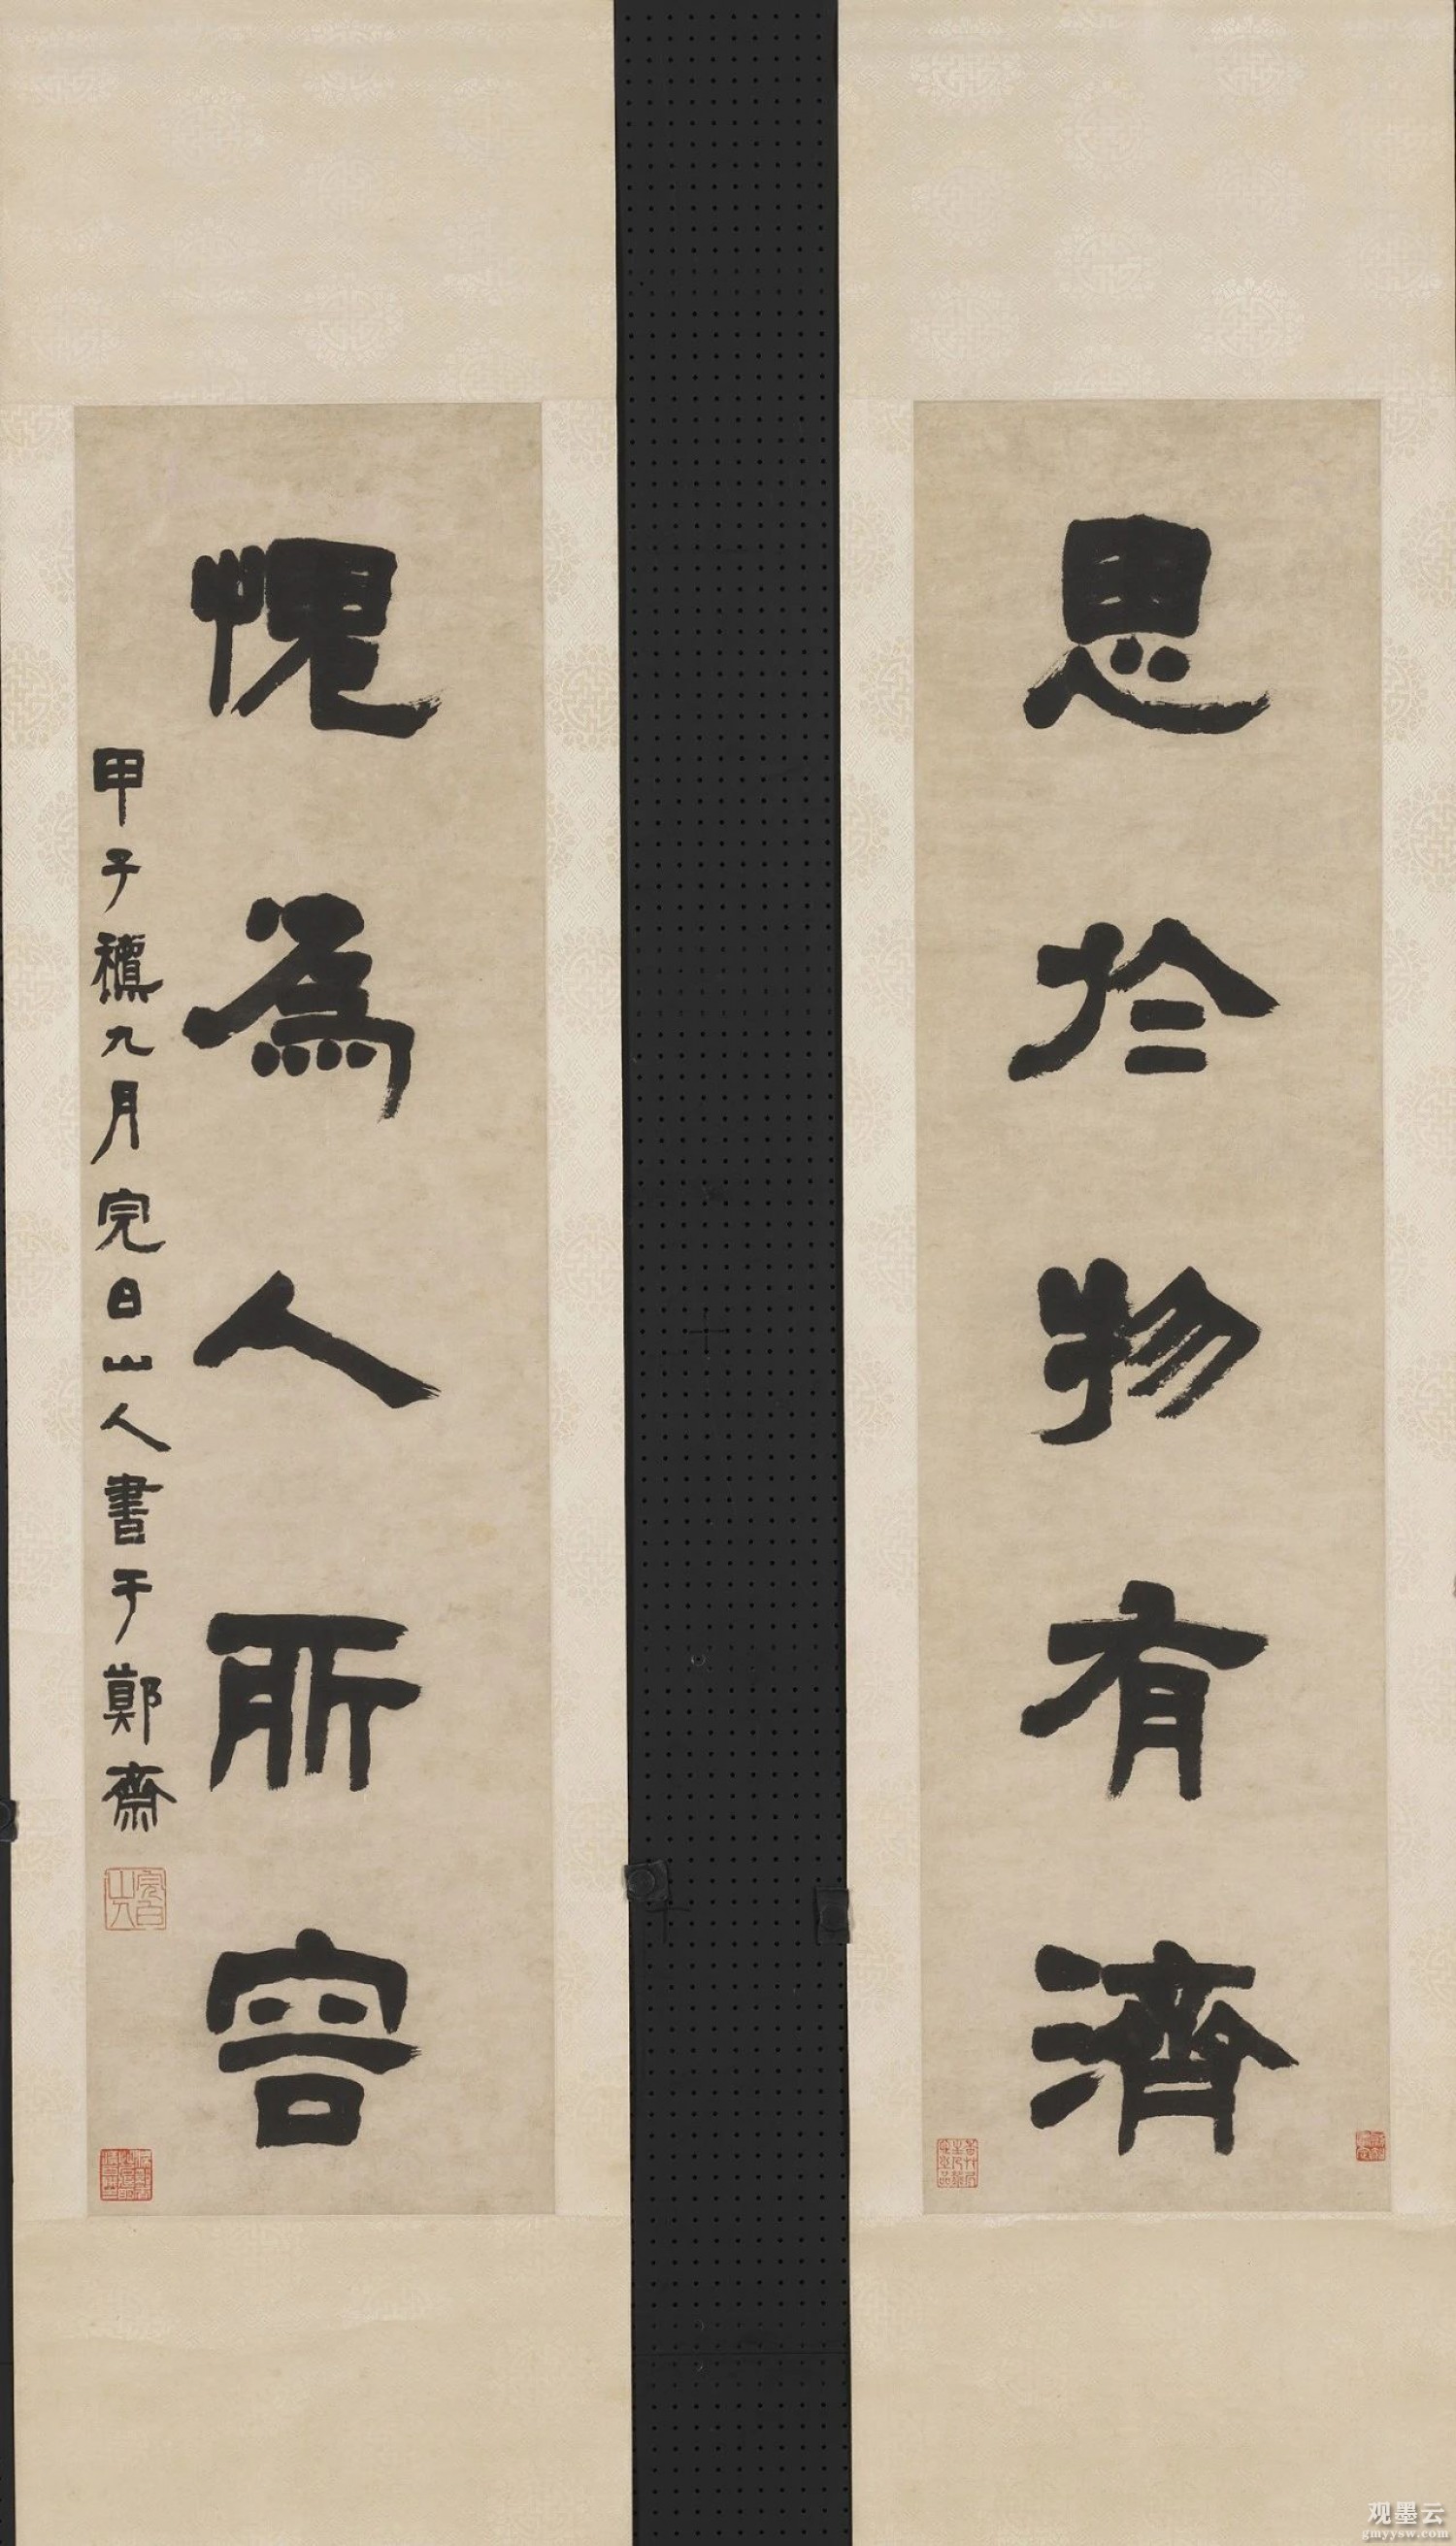 思於物有濟
愧為人所容
甲子穐九月完白山人書于鄭齋
完白山人
观墨云
gmyysw.com